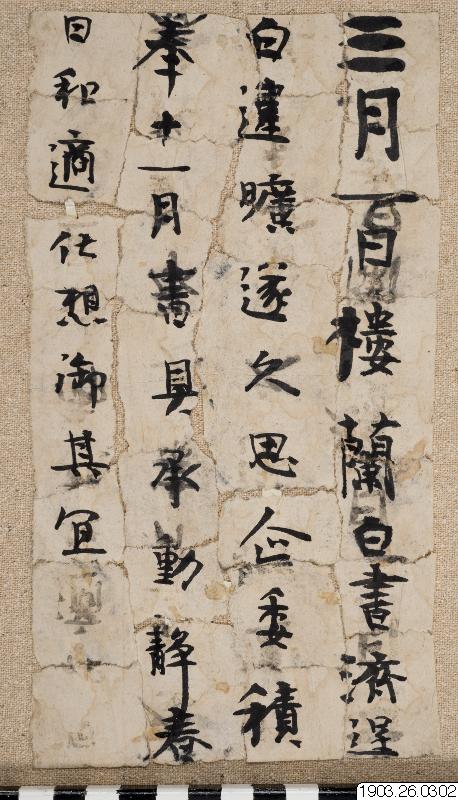 三月一日樓蘭白書濟逞
白違曠遂久思企委積
奉十一月書具承動靜春
日和適伏想御其宜
1903.26.0302